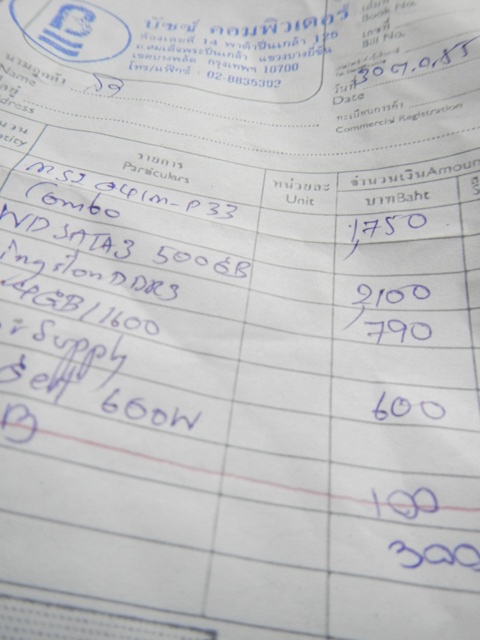 บัซซ์ คอมพิวเตอร์
ห้องเลขที่ 14 พาต้าปิ่นเกล้า 125
ถ.สมเด็จพระปิ่นเกล้า แขวงบางยี่ขัน
เขตบางพลัด กรุงเทพฯ 10700
โทร/แฟ็กซ์ : 02-8835392
Book No.
เลขที่
Bill No.
นามลูกค้า
Name
วันที่ 30 ต.ค. 55
Date
ทะเบียนการค้า
Commercial Registration
รายการ
Particulars
หน่วยละ
Unit
จำนวนเงิน Amount
บาท Baht
MSI G41M-P33 1,750
Combo
WD SATA3 500GB 2,100
DDR3 790
4GB/1600
Supply 600
600W
100
300